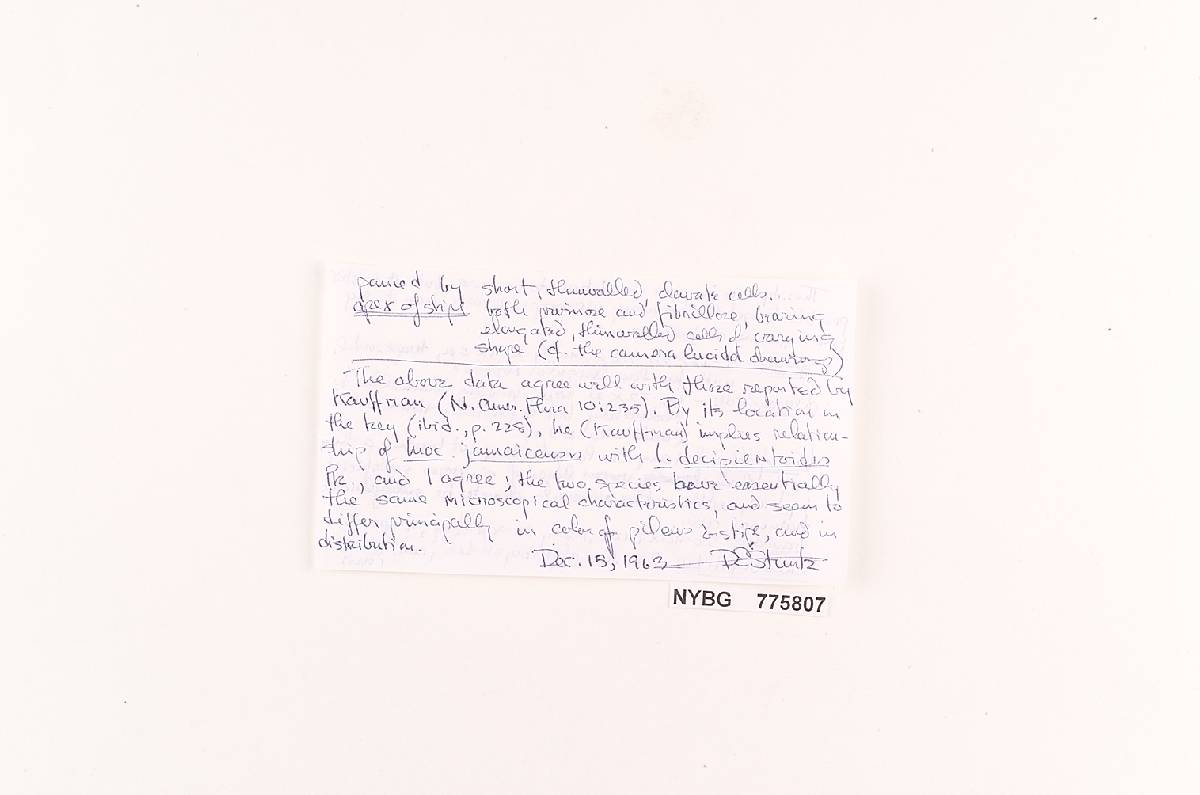 panied by short, thinwalled, clavate cells.
apex of stipe both pruinose and fibrillose, bearing
elongated, thinwalled cells of varying
shape (cf. the camera lucida drawings)
The above data agree well with those reported by
Kauffman (N. Amer. Flora 10:235). By its location in
the key (ibid., p. 228), he (Kauffman) implies relation-
ship of Inoc. jamaicensis with I. decipientoides
Pk., and I agree; the two species have essentially
the same microscopical characteristics, and seem to
differ principally in color of pileus & stipe, and in
distribution.
Dec. 15, 1963 DEStuntz
NYBG 775807